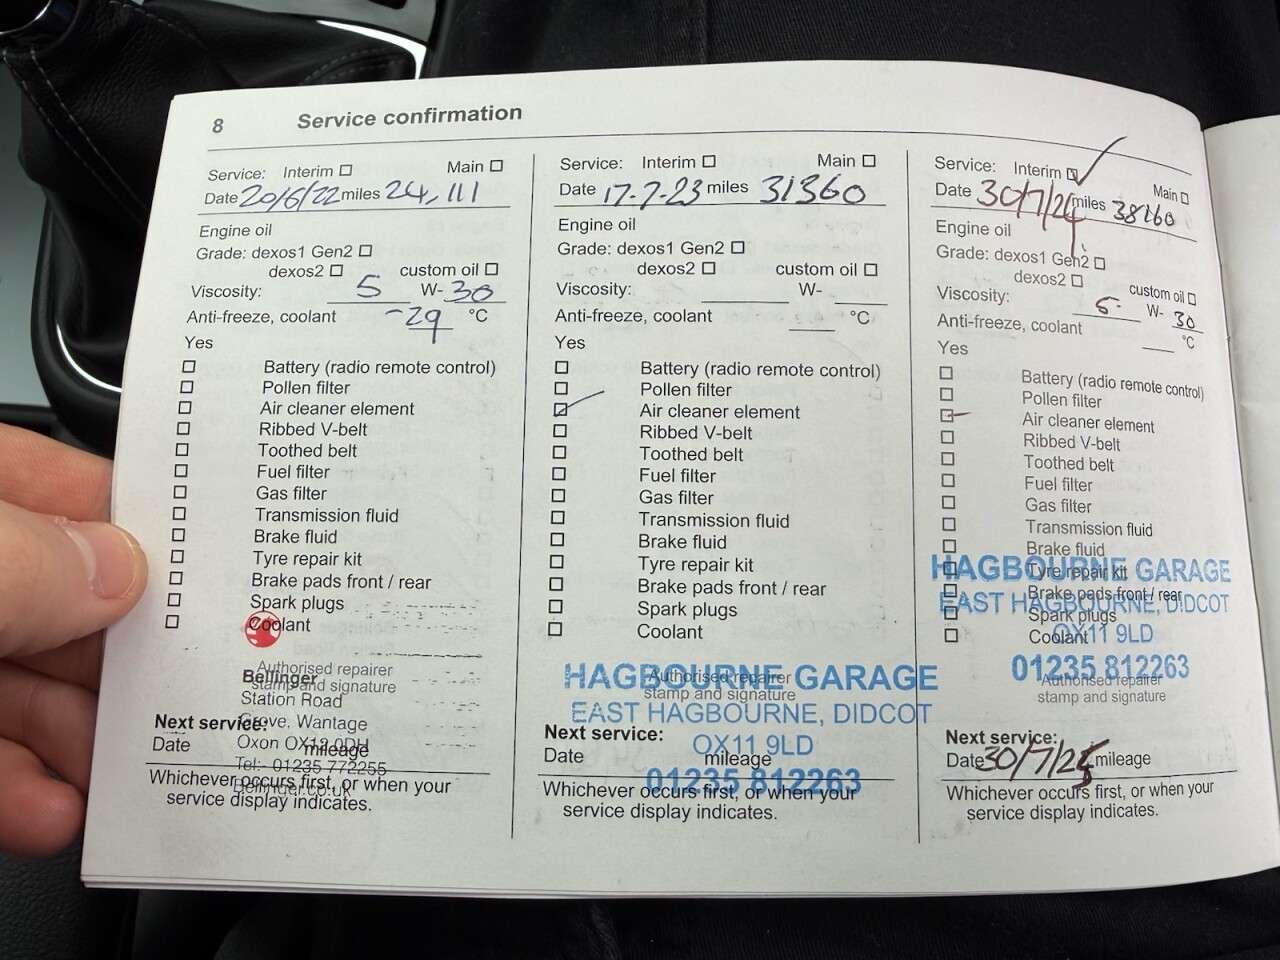 8
Service confirmation
Service: Interim ☐ Main ☐
Date 20/6/22 miles 24,111
Engine oil
Grade: dexos1 Gen2 ☐
dexos2 ☐ custom oil ☐
Viscosity: 5 W- 30
Anti-freeze, coolant -29 °C
Yes
☐ Battery (radio remote control)
☐ Pollen filter
☐ Air cleaner element
☐ Ribbed V-belt
☐ Toothed belt
☐ Fuel filter
☐ Gas filter
☐ Transmission fluid
☐ Brake fluid
☐ Tyre repair kit
☐ Brake pads front / rear
☐ Spark plugs
☐ Coolant
Authorised repairer
stamp and signature
Bellinger
Station Road
Grove, Wantage
Oxon OX12 0DH
Tel:- 01235 772255
Bellinger.co.uk
Next service:
Date mileage
Whichever occurs first, or when your
service display indicates.
Service: Interim ☐ Main ☐
Date 17-7-23 miles 31360
Engine oil
Grade: dexos1 Gen2 ☐
dexos2 ☐ custom oil ☐
Viscosity: W-
Anti-freeze, coolant °C
Yes
☐ Battery (radio remote control)
☐ Pollen filter
☑ Air cleaner element
☐ Ribbed V-belt
☐ Toothed belt
☐ Fuel filter
☐ Gas filter
☐ Transmission fluid
☐ Brake fluid
☐ Tyre repair kit
☐ Brake pads front / rear
☐ Spark plugs
☐ Coolant
Authorised repairer
stamp and signature
HAGBOURNE GARAGE
EAST HAGBOURNE, DIDCOT
OX11 9LD
01235 812263
Next service:
Date mileage
Whichever occurs first, or when your
service display indicates.
Service: Interim ☑ Main ☐
Date 30/7/24 miles 38160
Engine oil
Grade: dexos1 Gen2 ☐
dexos2 ☐ custom oil ☐
Viscosity: 5 W- 30
Anti-freeze, coolant °C
Yes
☐ Battery (radio remote control)
☐ Pollen filter
☑ Air cleaner element
☐ Ribbed V-belt
☐ Toothed belt
☐ Fuel filter
☐ Gas filter
☐ Transmission fluid
☐ Brake fluid
☐ Tyre repair kit
☐ Brake pads front / rear
☐ Spark plugs
☐ Coolant
HAGBOURNE GARAGE
EAST HAGBOURNE, DIDCOT
OX11 9LD
01235 812263
Authorised repairer
stamp and signature
Next service:
Date 30/7/25 mileage
Whichever occurs first, or when your
service display indicates.